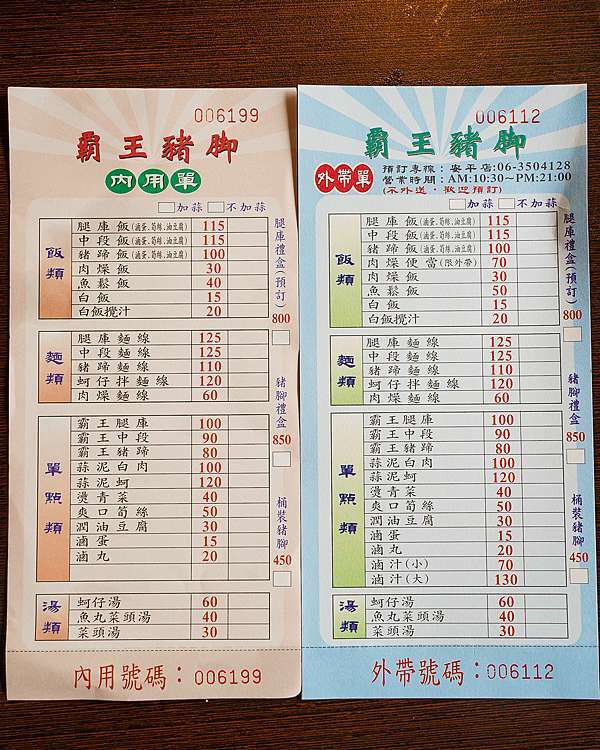 006199
霸王豬脚
內用單
加蒜 不加蒜
飯類
腿庫飯(滷蛋.筍絲.油豆腐) 115
中段飯(滷蛋.筍絲.油豆腐) 115
豬蹄飯(滷蛋.筍絲.油豆腐) 100
肉燥飯 30
魚鬆飯 40
白飯 15
白飯攪汁 20
麵類
腿庫麵線 125
中段麵線 125
豬蹄麵線 110
蚵仔拌麵線 120
肉燥麵線 60
單點類
霸王腿庫 100
霸王中段 90
霸王豬蹄 80
蒜泥白肉 100
蒜泥蚵 120
燙青菜 40
爽口筍絲 50
潤油豆腐 30
滷蛋 15
滷丸 20
湯類
蚵仔湯 60
魚丸菜頭湯 40
菜頭湯 30
腿庫禮盒(預訂) 800
豬腳禮盒 850
桶裝豬腳 450
內用號碼：006199
006112
霸王豬脚
外帶單
預訂專線：安平店:06-3504128
營業時間：AM:10:30~PM:21:00
(不外送，歡迎預訂)
加蒜 不加蒜
飯類
腿庫飯(滷蛋.筍絲.油豆腐) 115
中段飯(滷蛋.筍絲.油豆腐) 115
豬蹄飯(滷蛋.筍絲.油豆腐) 100
肉燥便當(限外帶) 70
肉燥飯 30
魚鬆飯 50
白飯 15
白飯攪汁 20
麵類
腿庫麵線 125
中段麵線 125
豬蹄麵線 110
蚵仔拌麵線 120
肉燥麵線 60
單點類
霸王腿庫 100
霸王中段 90
霸王豬蹄 80
蒜泥白肉 100
蒜泥蚵 120
燙青菜 40
爽口筍絲 50
潤油豆腐 30
滷蛋 15
滷丸 20
滷汁(小) 70
滷汁(大) 130
湯類
蚵仔湯 60
魚丸菜頭湯 40
菜頭湯 30
腿庫禮盒(預訂) 800
豬腳禮盒 850
桶裝豬腳 450
外帶號碼：006112